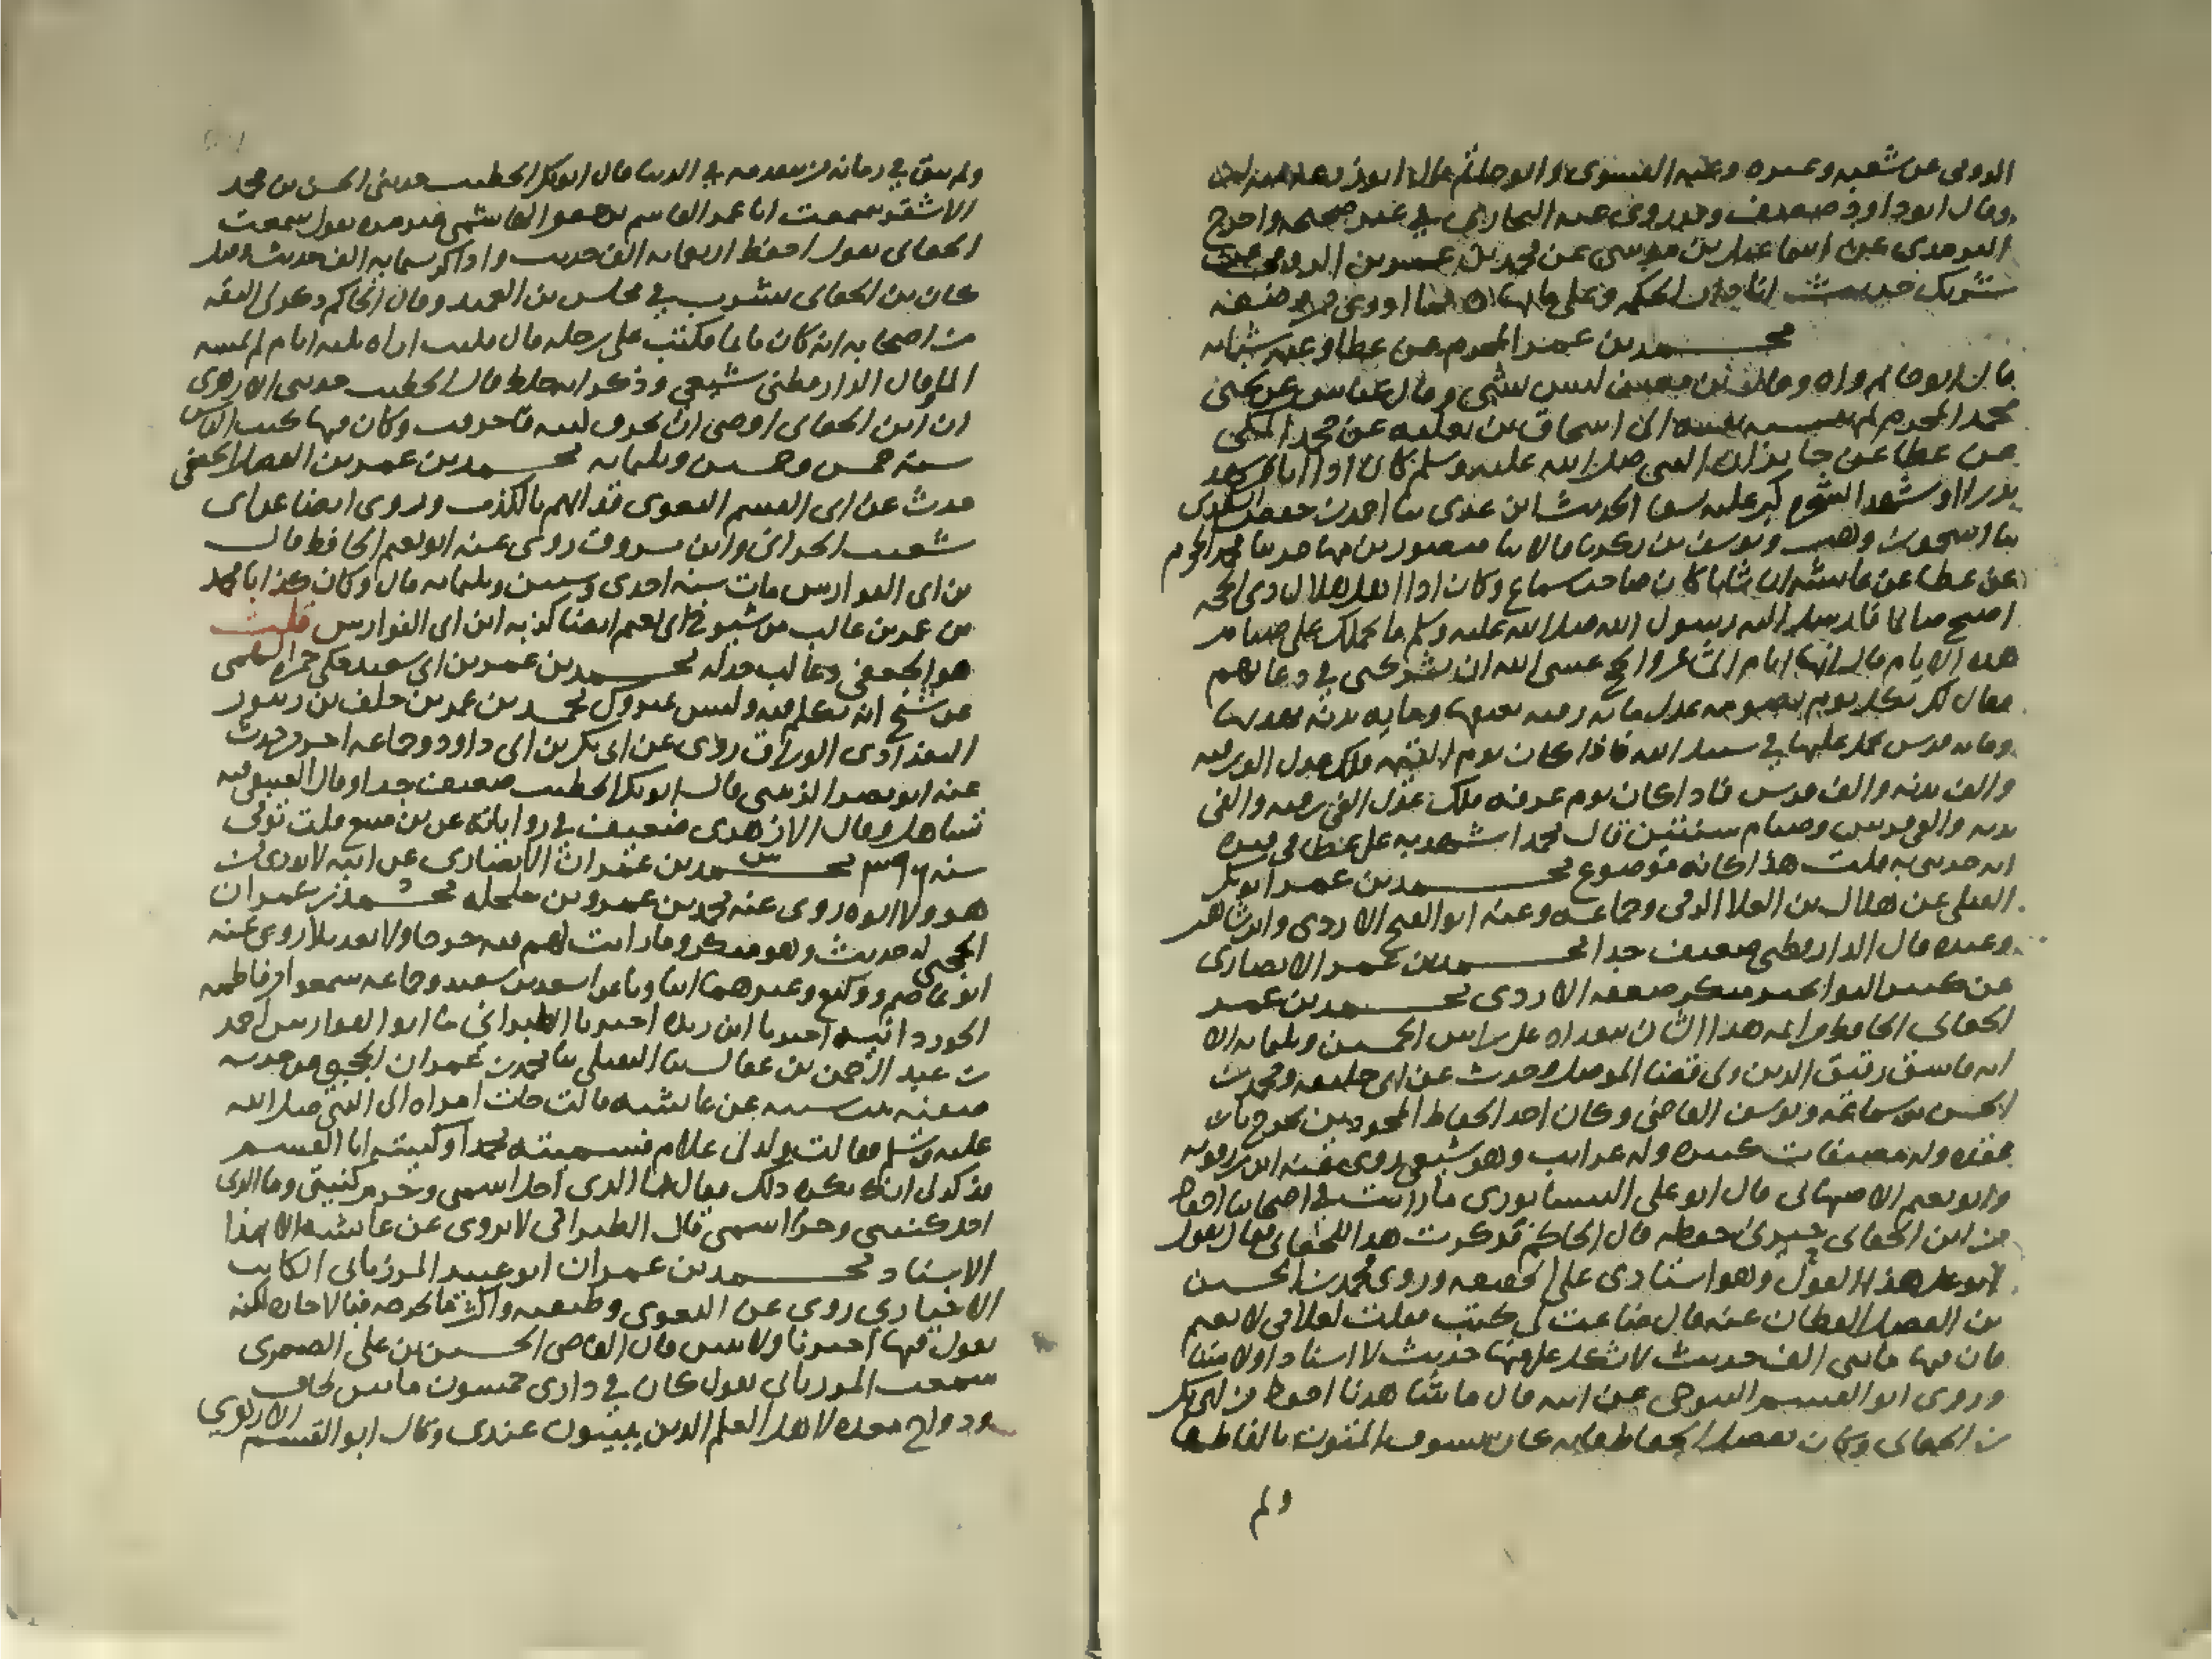 الرومي عن شعبه وغيره وعنه الفسوي وابو حاتم قال ابو زرعه فيه لين
وقال ابو داود ضعيف وقد روى عنه البخاري في غير صحيحه واخرج
الترمذي عن اسماعيل بن موسى عن محمد بن عمر بن الرومي عن
شريك حديث انا دار الحكمه وعلي بابها
محمد بن عمر المحرم عن عطا وعنه شبابه
قال ابو حاتم واه وقال ابن معين ليس بشي وقال عباس عن يحيى
محمد المحرم اسحاق بن ثعلبه عن محمد المكي
عن عطا عن جابر ان النبي صلى الله عليه وسلم كان اذا اتاه من شهد
بدرا او شهد الشجره كبر عليه تسعا الحديث ابن عدي نا احمد بن حفص السعدي
نا اسحق بن وهب ويوسف بن زكريا قالا نا منصور بن مهاجر نا محمد المحرم
عن عطا عن عائشه ان شابا كان صاحب سماع وكان اذا اهل هلال ذي الحجه
اصبح صائما فارسل اليه رسول الله صلى الله عليه وسلم ما يحملك على صيام
هذه الايام قال انها ايام المشاعر والحج عسى الله ان يشركني في دعائهم
فقال لك بكل يوم تصومه عدل مائه رقبه تعتقها ومايه بدنه تهديها
ومايه فرس تحمل عليها في سبيل الله فاذا كان يوم الترويه فلك عدل الف رقبه
والف بدنه والف فرس فاذا كان يوم عرفه فلك عدل الفي رقبه والفي
بدنه والفي فرس وصيام سنتين قال محمد اشهد به على عطا في قبره
انه حدثني به قلت هذا كانه موضوع محمد بن عمر ابو بكر
القبلي عن هلال بن العلا الرقي وجماعه وعنه ابو الفتح الازدي وابن شاهين
وعده قال الدارقطني ضعيف جدا محمد بن عمر الانصاري
عن كثير النوا بخبر منكر ضعفه الازدي محمد بن عمر
الجعابي الحافظ من ائمه هذا الشان ببغداد على راس الخمسين وثلثمايه الا
انه فاسق رقيق الدين ولي قضا الموصل وحدث عن ابي خليفه ومحمد بن
الحسن بن سماعه ويوسف القاضي وكان احد الحفاظ المجودين تخرج بابن
عقده وله مصنفات كثيره وله غرايب وهو شيعي روى عنه ابن رزقويه
وابو نعيم الاصبهاني قال ابو علي النيسابوري ما رايت في اصحابنا احفظ
من ابن الجعابي حيرني حفظه قال الحاكم فذكرت هذا للجعابي فقال يقول
ابو علي هذا القول وهو استاذي على الحقيقه وروى محمد بن الحسين
بن الفضل القطان عنه قال ضاعت لي كتب فقلت لغلامي لا تغتم
فان فيها مائتي الف حديث لا يشكل علي منها حديث لا اسنادا ولا متنا
وروى ابو القسم التنوخي عن ابيه قال ما شاهدنا احفظ من ابي بكر
بن الجعابي وكان يفضل الحفاظ فانه كان يسوق المتون بالفاظها
ولم
ولم يبق في زمانه من يتقدمه في الدنيا قال ابو بكر الخطيب حدثني الحسن بن محمد
الاشقر سمعت ابا عمر القاسم بن جعفر الهاشمي غير مره يقول سمعت
الجعابي يقول احفظ اربعمايه الف حديث واذاكر بستمايه الف حديث وقيل
كان بن الجعابي يشرب في مجلس بن العميد وقال الحاكم ذكر لي الثقه
من اصحابه انه كان نائما فكتب على رجله قال فكنت اراه ثلثه ايام لم يمسه
الما وقال الدارقطني شيعي وذكر انه خلط قال الخطيب حدثني الازهري
ان ابن الجعابي اوصى ان تحرق كتبه فاحرقت وكان فيها كتب للناس
سنه خمس وخمسين وثلثمايه محمد بن عمر بن الفضل الجعفي
حدث عن ابي القسم البغوي قد اتهم بالكذب وروى ايضا عن ابي
شعيب الحراني وابن مسروق روى عنه ابو نعيم الحافظ قال
بن ابي الفوارس مات سنه احدى وستين وثلثمايه قال وكان كذابا محمد
بن عمر بن غالب من شيوخ ابي نعيم ايضا كذبه ابن ابي الفوارس قلت
هو الجعفي وغالب جد له محمد بن عمر بن ابي سعيد حكى حمزه السهمي
عن شيخ انه تكلم فيه وليس عبدوك محمد بن عمر بن خلف بن زنبور
البغدادي الوراق روى عن ابي بكر بن ابي داود وجماعه اخر من حدث
عنه ابو نصر الزينبي قال ابو بكر الخطيب ضعيف جدا وقال العتيقي فيه
تساهل وقال الازهري ضعيف في رواياته عن بن منيع قلت توفي
سنه ٣٩٦ محمد بن عمران الانصاري عن ابيه لا يدرى من
هو ولا ابوه روى عنه محمد بن عمرو بن حلحله محمد بن عمران
الحجبي له حديث وهو منكر وما رايت لهم فيه جرحا ولا تعديلا روى عنه
ابو عاصم ووكيع وغيرهما انبانا اسعد بن سعيد وجماعه سمعوا فاطمه
الجوزدانيه اخبرنا ابن ريذه اخبرنا الطبراني نا ابو الفوارس احمد
بن عبد الرحمن بن عقال نا النفيلي نا محمد بن عمران الحجبي عن جدته
صفيه بنت شيبه عن عائشه قالت جات امراه الى النبي صلى الله
عليه وسلم فقالت ولد لي غلام فسميته محمدا وكنيته ابا القسم
فذكر لي انك تكره ذلك فقال ما الذي احل اسمي وحرم كنيتي وما الذي
احل كنيتي وحرم اسمي قال الطبراني لا يروى عن عائشه الا بهذا
الاسناد محمد بن عمران ابو عبيد الله المرزباني الكاتب
الاخباري روى عن البغوي وطبقته واكثر ما يخرجه فبالاجازه لكنه
يقول فيها اخبرنا ولا يبين قال القاضي الحسين بن علي الصيمري
سمعت المرزباني يقول كان في داري خمسون ما بين لحاف
ودواج معده لاهل العلم الذين يبيتون عندي وقال ابو القسم الازهري